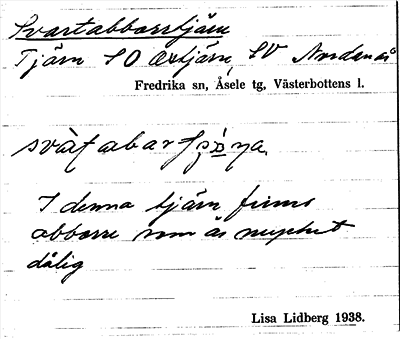 Svartabborrtjärn
Tjärn SO Oxtjärn, SV Nordanås
Fredrika sn, Åsele tg, Västerbottens l.
I denna tjärn finns
abborre som är mycket
dålig
Lisa Lidberg 1938.